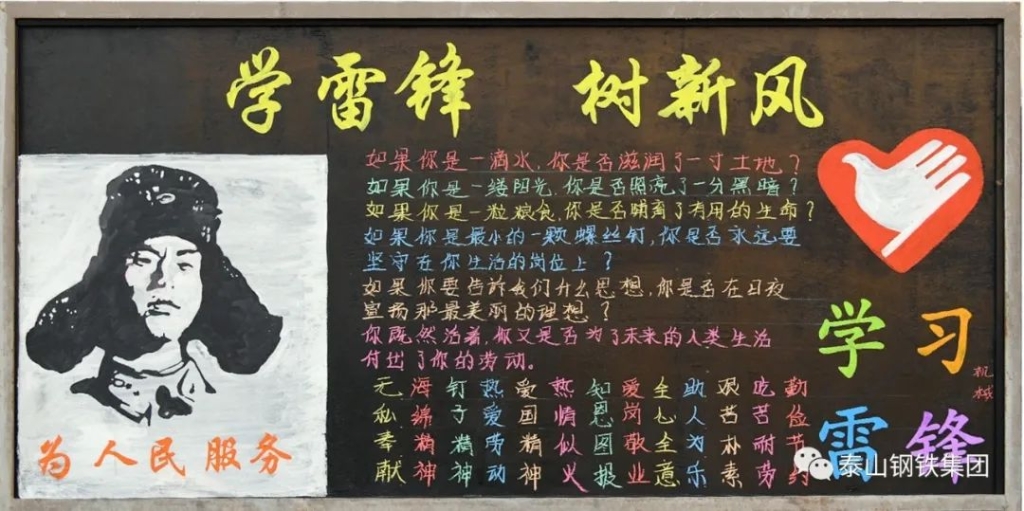 学雷锋 树新风
如果你是一滴水,你是否滋润了一寸土地?
如果你是一缕阳光,你是否照亮了一分黑暗?
如果你是一粒粮食,你是否哺育了有用的生命?
如果你是最小的一颗螺丝钉,你是否永远要
坚守在你生活的岗位上?
如果你要告诉我们什么思想,你是否在日夜
宣扬那最美丽的理想?
你既然活着,你又是否为了未来的人类生活
付出了你的劳动。
无私奉献
海绵精神
钉子精神
热爱劳动
爱国精神
热情似火
知恩图报
爱岗敬业
全心全意
助人为乐
艰苦朴素
吃苦耐劳
勤俭节约
为人民服务
学习
雷锋
机械
泰山钢铁集团